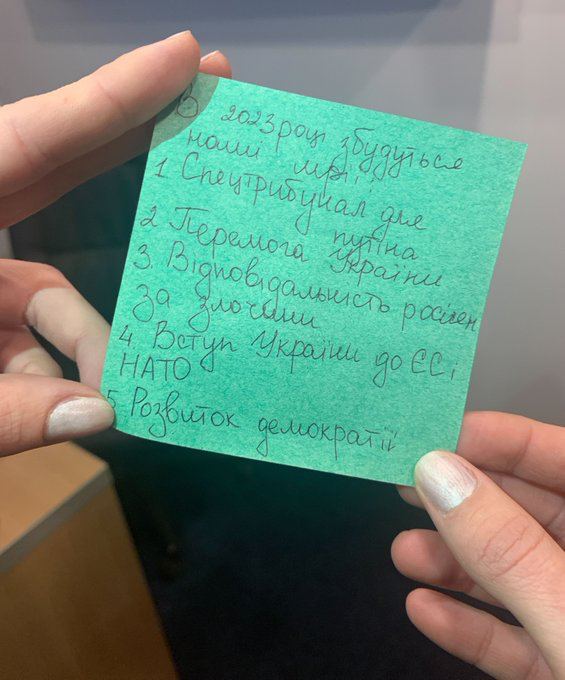 В 2023 році збудуться
наші мрії:
1 Спецтрибунал для
путіна
2 Перемога України
3. Відповідальність росіян
за злочини
4. Вступ України до ЄС і
НАТО
5 Розвиток демократії